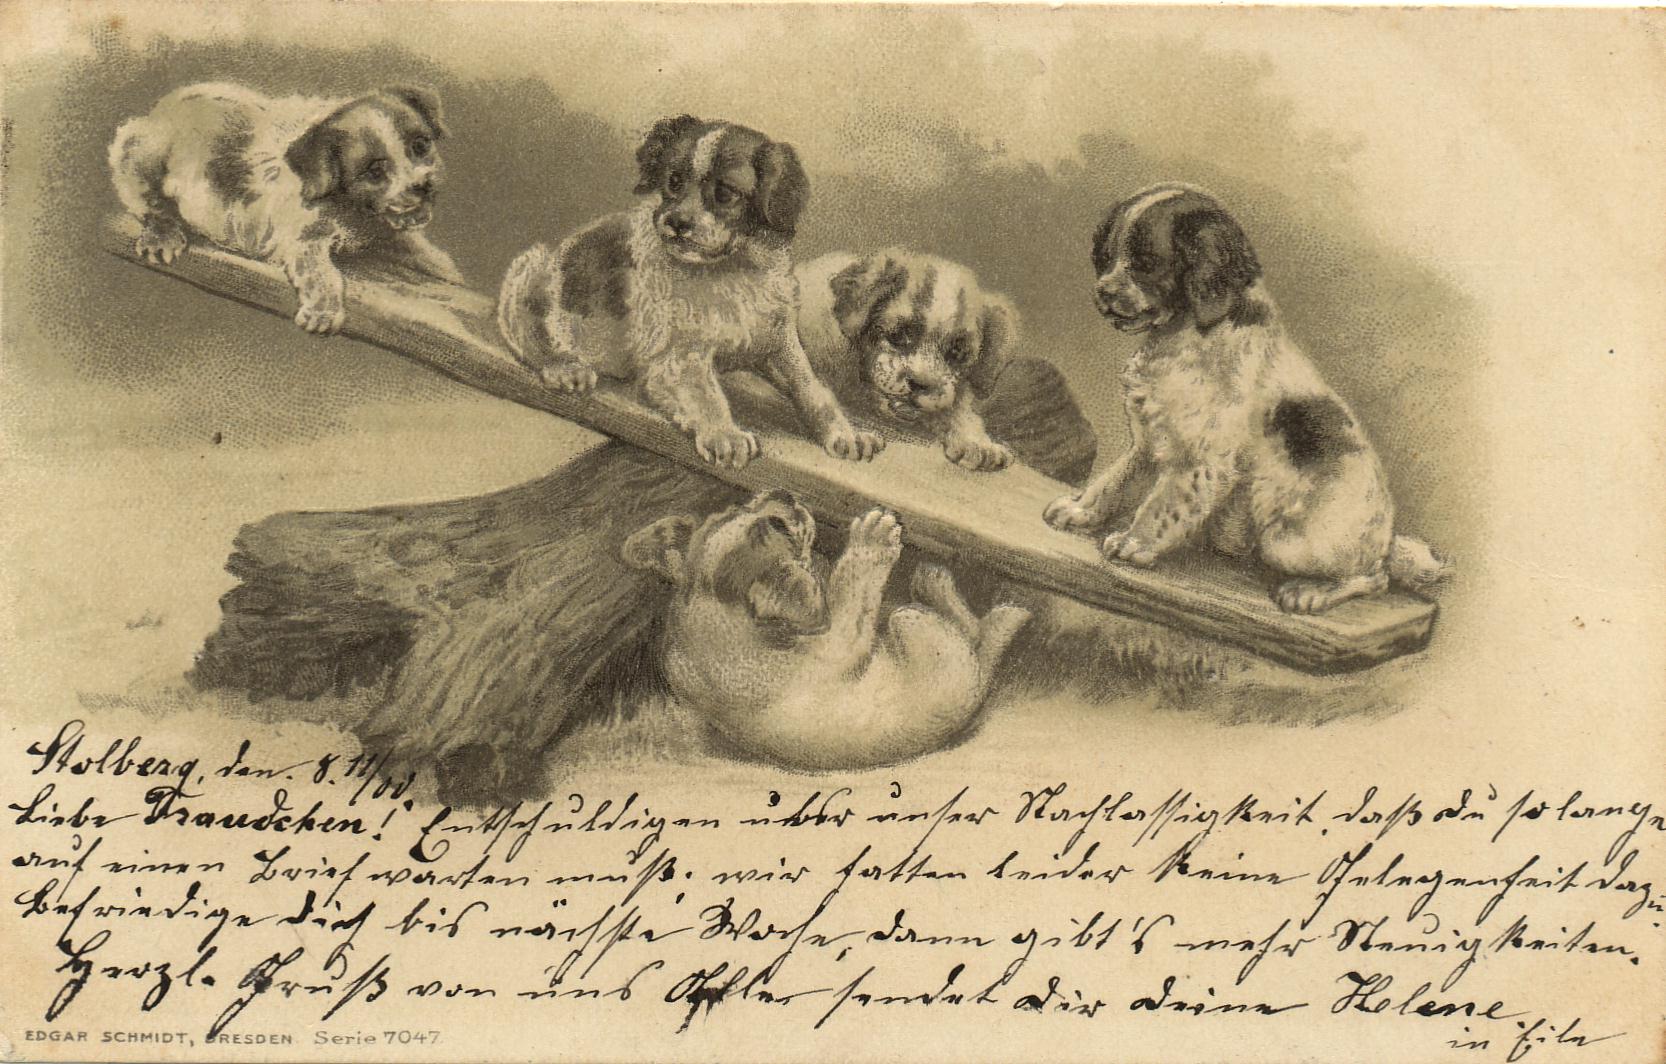 Stolberg, den 8. 11/00.
Liebe Traudchen! Entschuldigen über unser Nachlassigkeit, daß du so lange
auf einen Brief warten muß; wir hatten leider keine Gelegenheit dazu
Befriedige dich bis nächste Woche, dann gibt's mehr Neuigkeiten.
Herzl. Gruß von uns Alle sendet dir deine Helene
in Eile
EDGAR SCHMIDT, DRESDEN. Serie 7047.